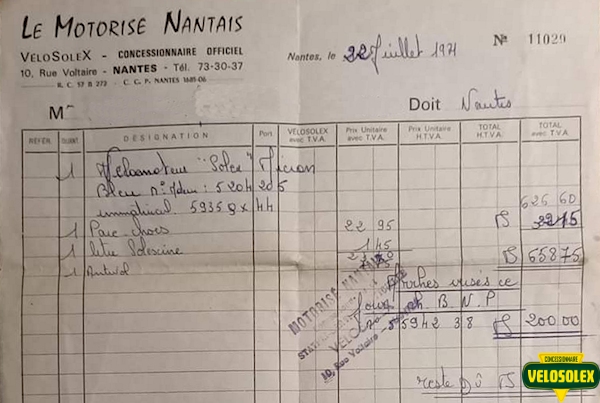 LE MOTORISE NANTAIS
VELOSOLEX - CONCESSIONNAIRE OFFICIEL
10, Rue Voltaire - NANTES - Tél. 73-30-37
R. C. 57 B 272 - C. C. P. NANTES 1681-06
Nantes, le 22 Juillet 1971
№ 11029
M
Doit Nantes
RÉFÉR. QUANT. DÉSIGNATION Port VÉLOSOLEX avec T.V.A. Prix Unitaire avec T.V.A. Prix Unitaire H.T.V.A. TOTAL H.T.V.A. TOTAL avec T.V.A.
1 Vélomoteur "Solex" Micron
Bleu n° Mdur : 5204205
immatricul. 5935 QX 44
626 60
1 Pare-chocs 22 95
1 litre Solexine 1 45
658 75
1 Antivol
Arrhes versés ce
Jour ch B.N.P
5594238 200.00
MOTORISE NANTAIS
10, Rue Voltaire
reste Dû
CONCESSIONNAIRE
VELOSOLEX